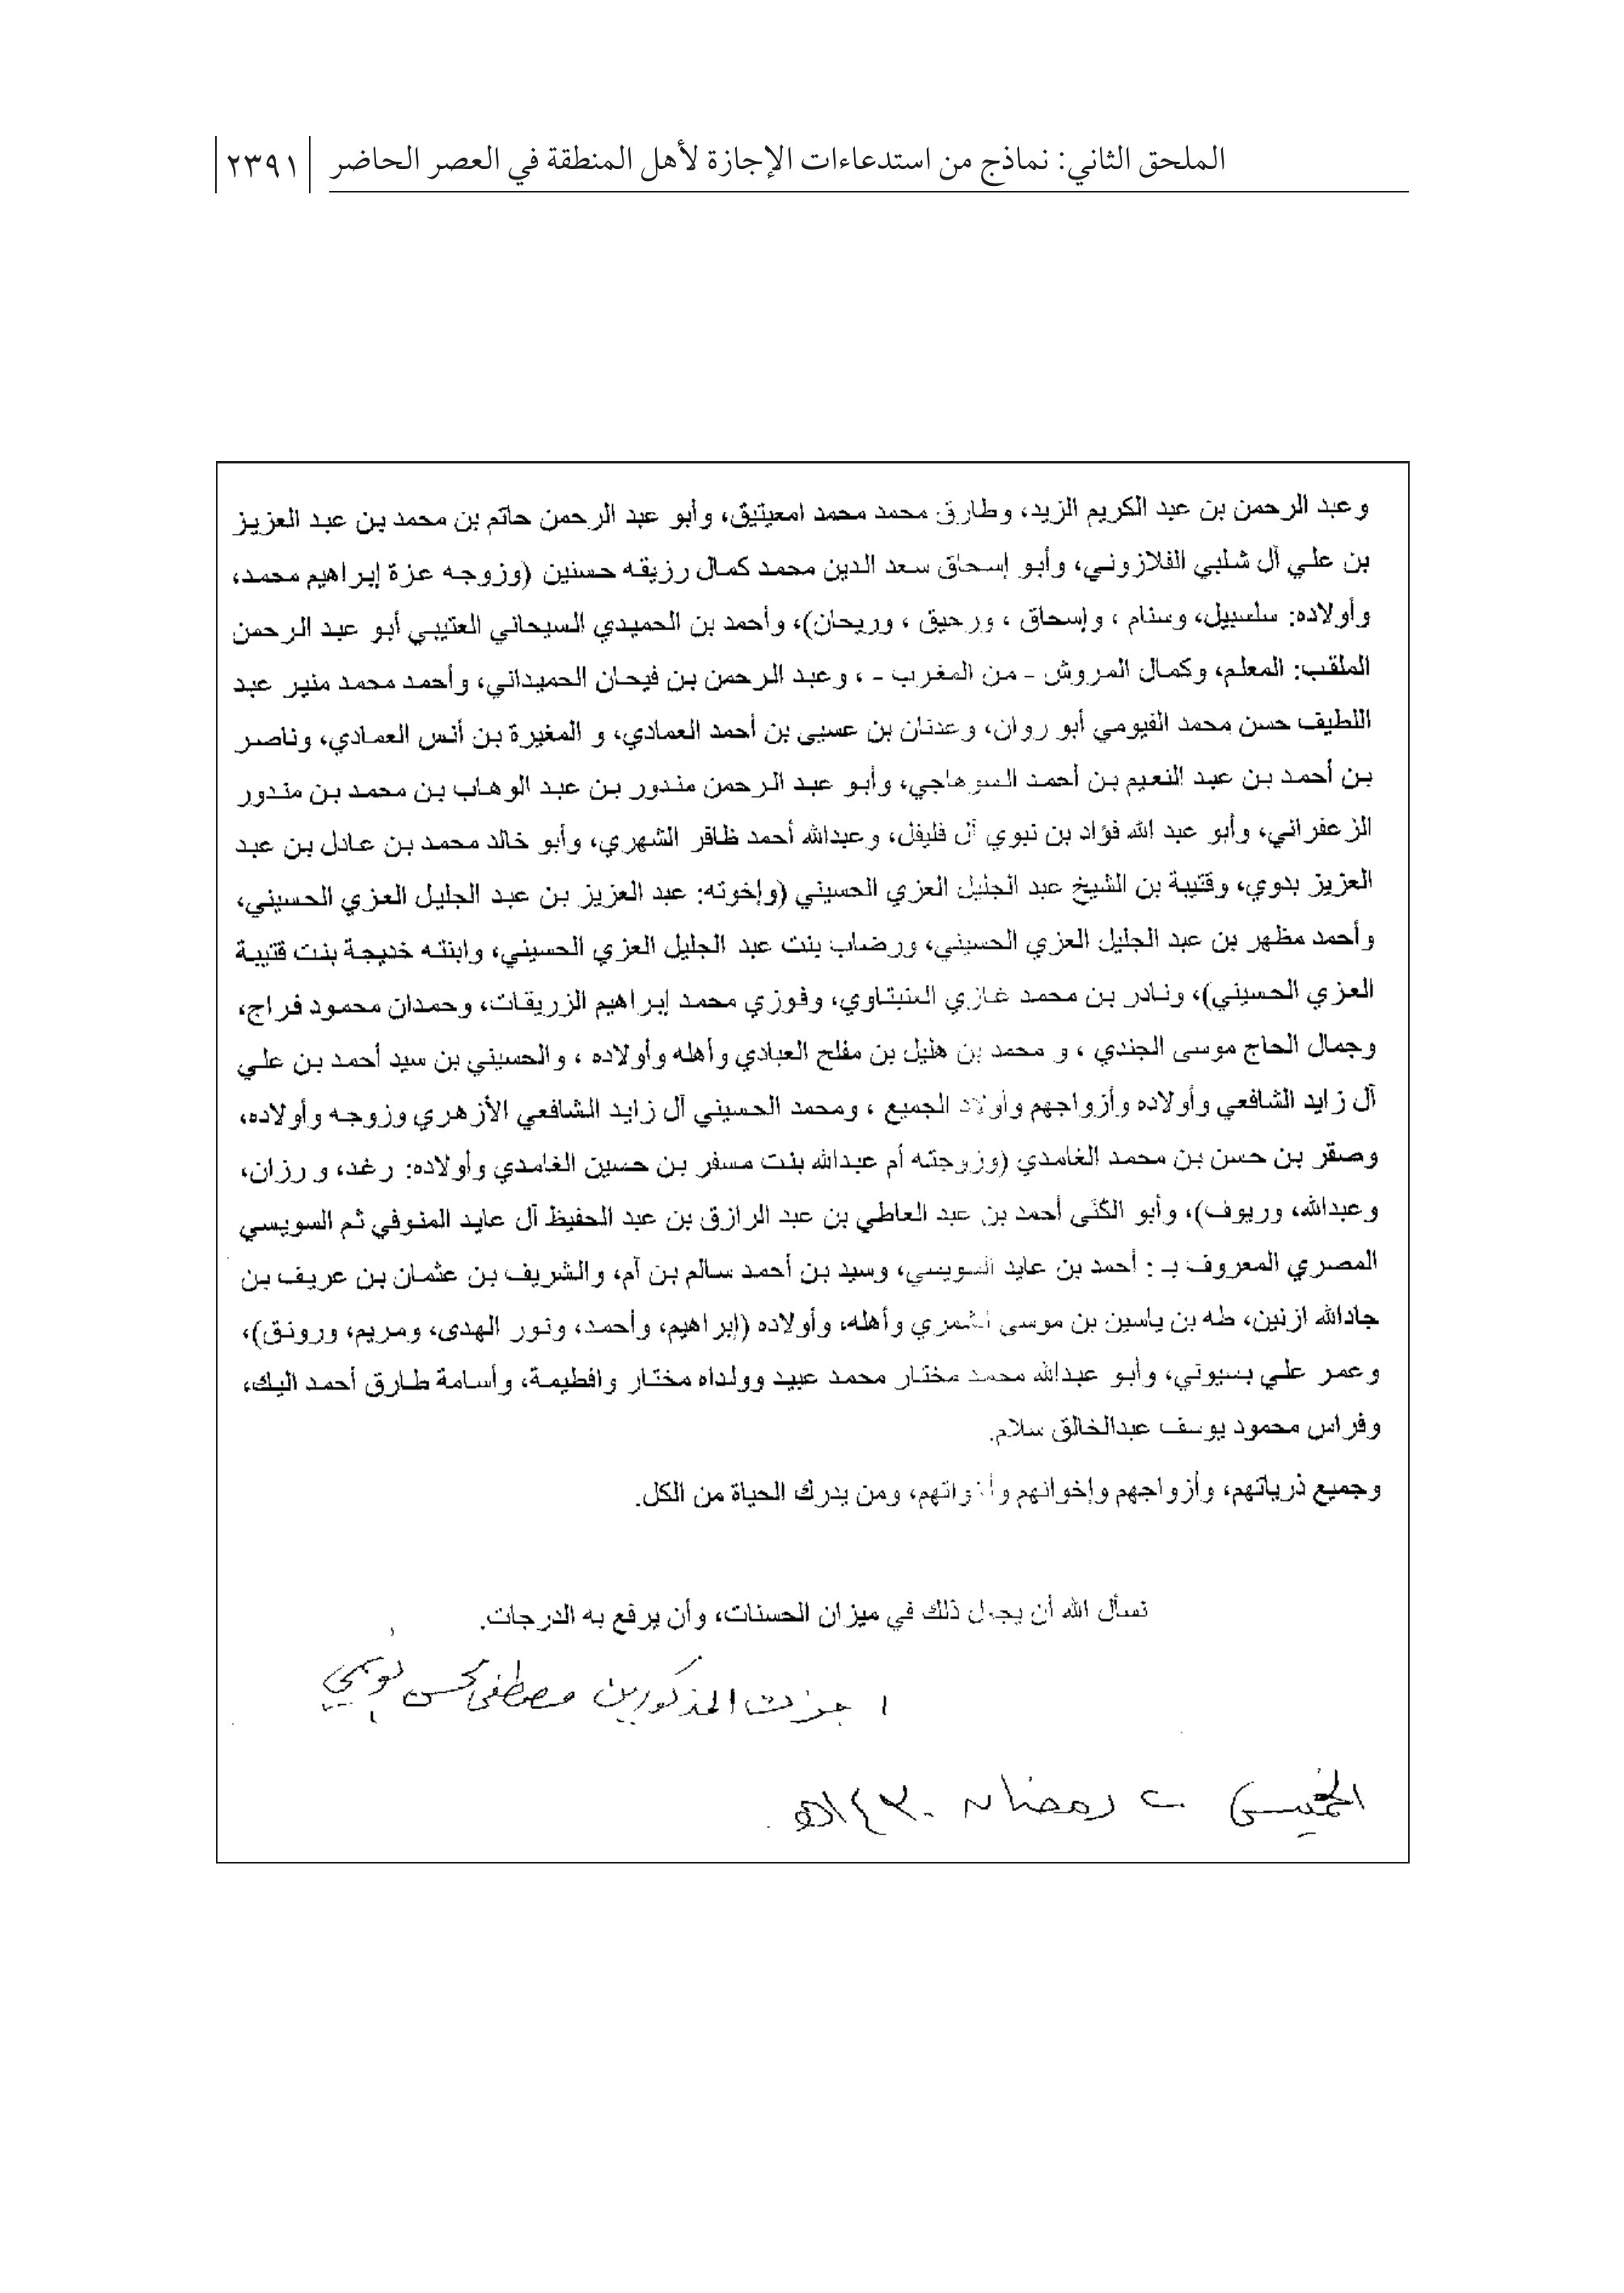 الملحق الثاني: نماذج من استدعاءات الإجازة لأهل المنطقة في العصر الحاضر ٢٣٩١
وعبد الرحمن بن عبد الكريم الزيد، وطارق محمد محمد امعيتيق، وأبو عبد الرحمن حاتم بن محمد بن عبد العزيز
بن علي آل شلبي الفلازوني، وأبو إسحاق سعد الدين محمد كمال رزيقه حسنين (وزوجه عزة إبراهيم محمد،
وأولاده: سلسبيل، وسنام ، وإسحاق ، ورحيق ، وريحان)، وأحمد بن الحميدي السيحاني العتيبي أبو عبد الرحمن
الملقب: المعلم، وكمال المروش - من المغرب - ، وعبد الرحمن بن فيحان الحميداني، وأحمد محمد منير عبد
اللطيف حسن محمد الفيومي أبو روان، وعدنان بن عسيى بن أحمد العمادي، و المغيرة بن أنس العمادي، وناصر
بن أحمد بن عبد النعيم بن أحمد السوهاجي، وأبو عبد الرحمن مندور بن عبد الوهاب بن محمد بن مندور
الزعفراني، وأبو عبد الله فؤاد بن نبوي آل فليفل، وعبدالله أحمد ظافر الشهري، وأبو خالد محمد بن عادل بن عبد
العزيز بدوي، وقتيبة بن الشيخ عبد الجليل العزي الحسيني (وإخوته: عبد العزيز بن عبد الجليل العزي الحسيني،
وأحمد مظهر بن عبد الجليل العزي الحسيني، ورضاب بنت عبد الجليل العزي الحسيني، وابنته خديجة بنت قتيبة
العزي الحسيني)، ونادر بن محمد غازي العنبتاوي، وفوزي محمد إبراهيم الزريقات، وحمدان محمود فراج،
وجمال الحاج موسى الجندي ، و محمد بن هليل بن مفلح العبادي وأهله وأولاده ، والحسيني بن سيد أحمد بن علي
آل زايد الشافعي وأولاده وأزواجهم وأولاد الجميع ، ومحمد الحسيني آل زايد الشافعي الأزهري وزوجه وأولاده،
وصقر بن حسن بن محمد الغامدي (وزوجته أم عبدالله بنت مسفر بن حسين الغامدي وأولاده: رغد، و رزان،
وعبدالله، وريوف)، وأبو الكُنَى أحمد بن عبد العاطي بن عبد الرازق بن عبد الحفيظ آل عايد المنوفي ثم السويسي
المصري المعروف بـ : أحمد بن عايد السويسي، وسيد بن أحمد سالم بن آم، والشريف بن عثمان بن عريف بن
جادالله ازنين، طه بن ياسين بن موسى الشمري وأهله، وأولاده (إبراهيم، وأحمد، ونور الهدى، ومريم، ورونق)،
وعمر علي بسيوني، وأبو عبدالله محمد مختار محمد عبيد وولداه مختار وافطيمة، وأسامة طارق أحمد اليك،
وفراس محمود يوسف عبدالخالق سلام.
وجميع ذرياتهم، وأزواجهم وإخوانهم وأخواتهم، ومن يدرك الحياة من الكل.
نسأل الله أن يجعل ذلك في ميزان الحسنات، وأن يرفع به الدرجات.
اجزت المذكورين مصطفى محسن
الخميس ٢ رمضان ١٤٣٠هـ